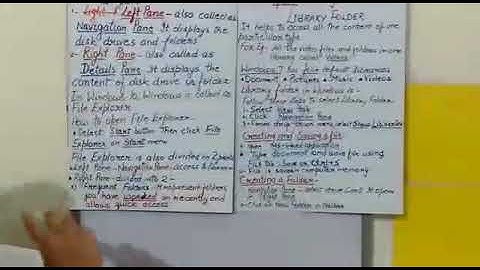 1- Light & Left Pane - also called as
Navigation Pane It displays the
disk drives and folders
2- Right Pane - also called as
Details Pane It displays the
content of disk drive or folder
In Windows 10 Windows is called as
File Explorer
How to open File Explorer-
Select Start button Then click File
Explorer on Start menu
File Explorer is also divided in 2 panes
Left Pane - Navigation Pane - access &
Right Pane - divided into 2 -
Frequent Folders - It represent folders
you have worked on recently and
allows quick access
LIBRARY FOLDER
It helps to access all the content of one
particular type
For Eg - All the video files and folders in one
library called Videos
Windows 10 has four default libraries
Document Pictures Music Videos
Library folder in Windows 10
Follow these steps to select Library Folder
Select View Tab
Click Navigation Pane
From drop down menu select Show Libraries
Creating and Saving a file
Open application
Type document and save for using
File Save or Ctrl+S
File is saved in computer memory
Creating a Folder
Navigation Pane - Select drive
Right Pane
Click on New folder in